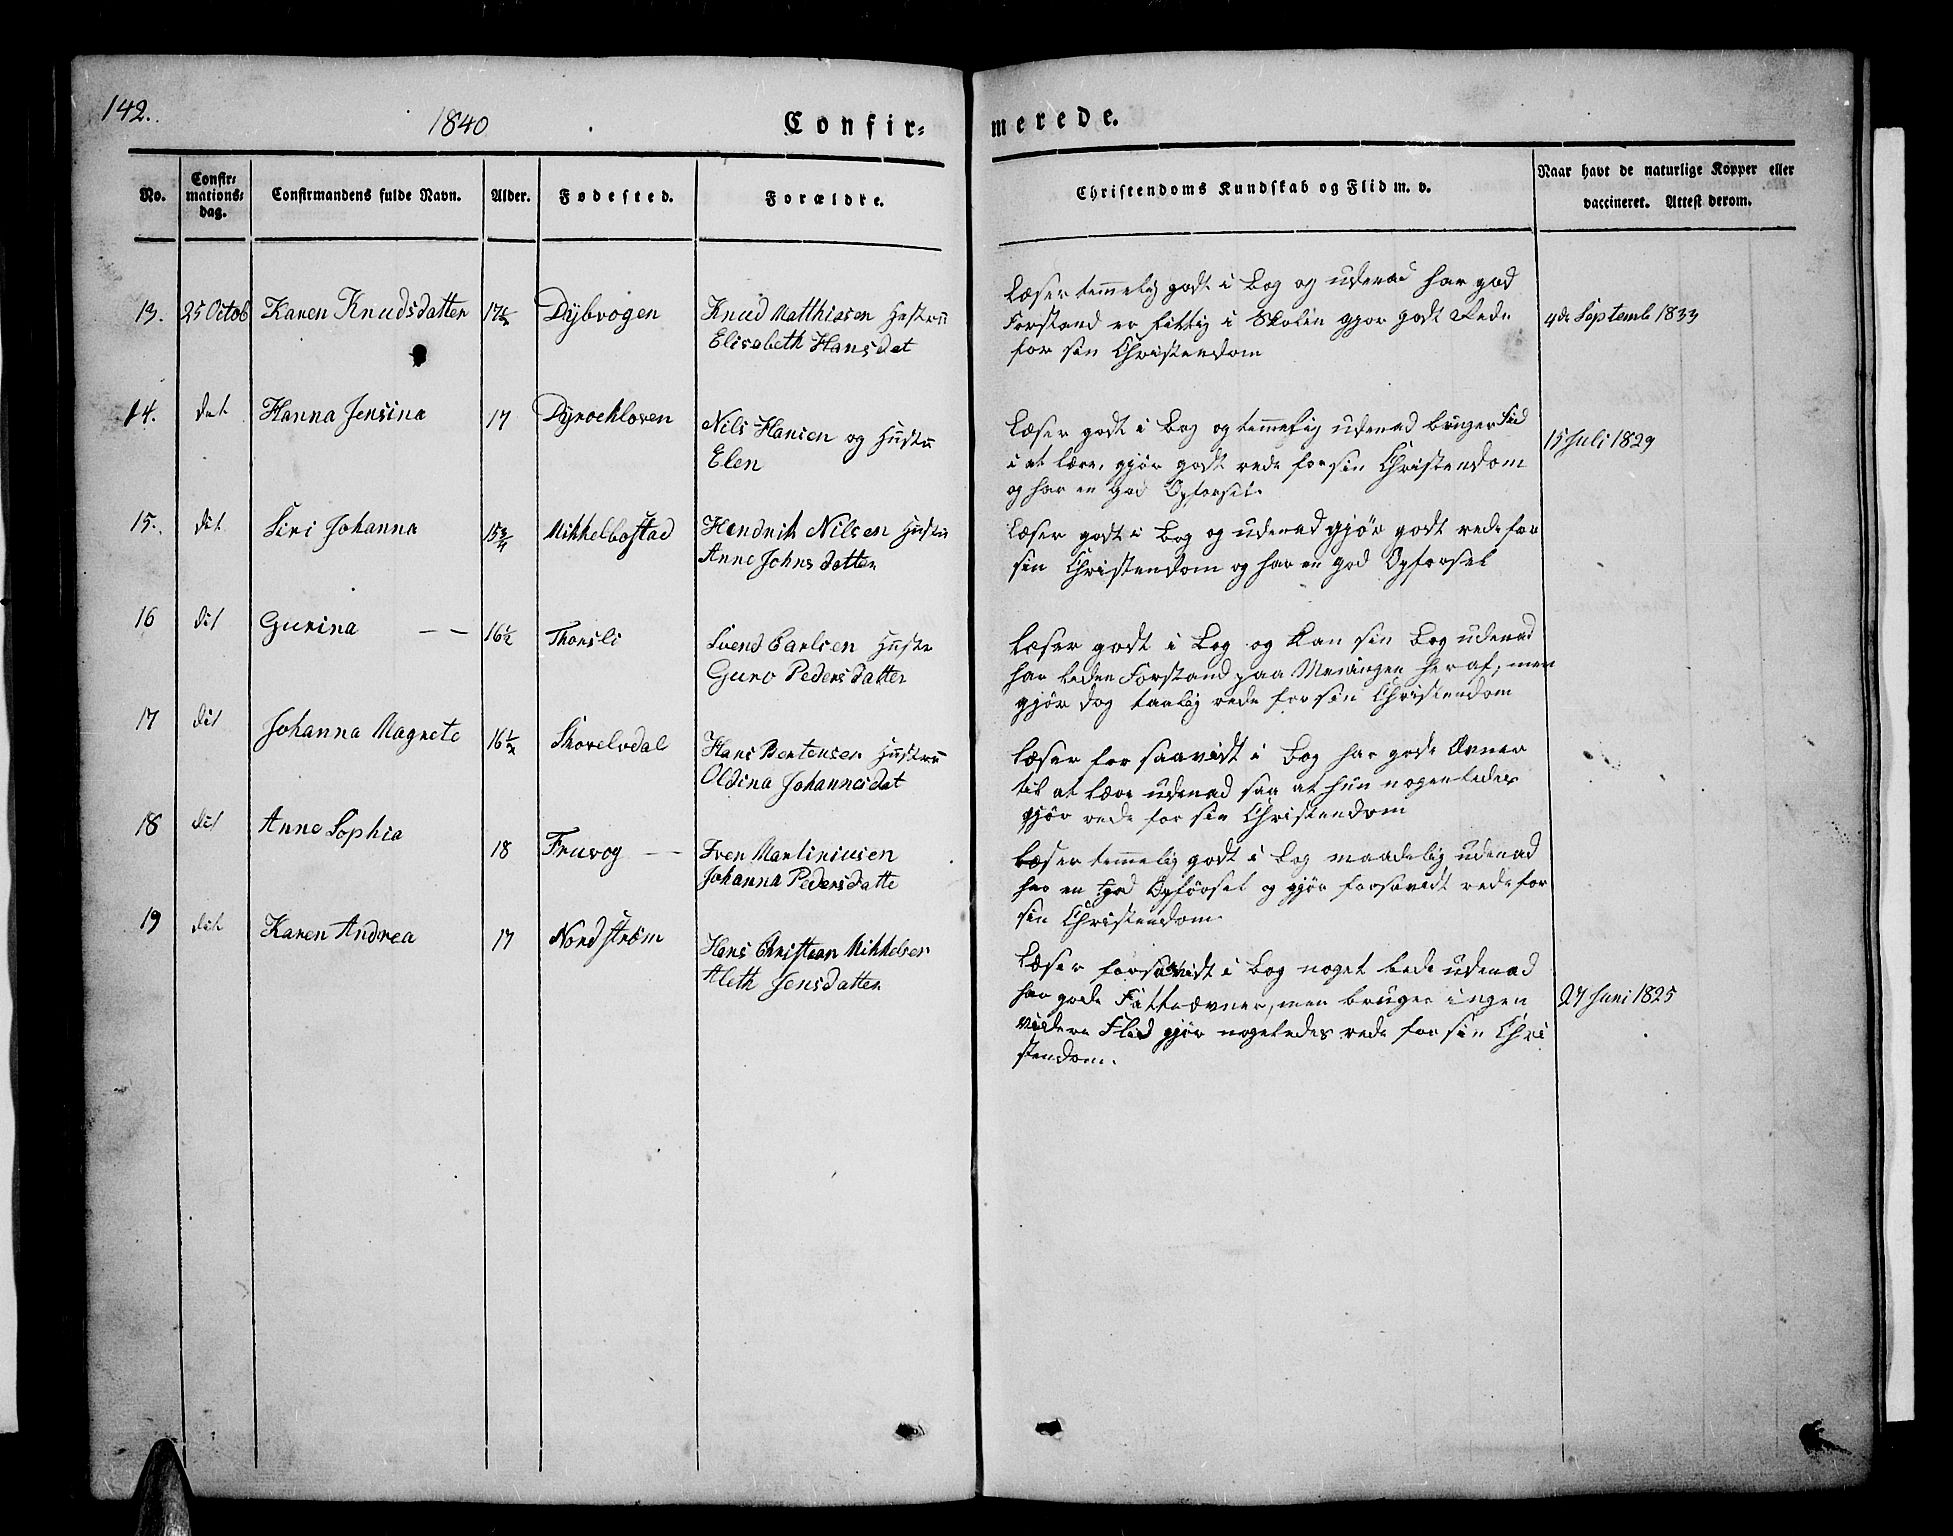 142.
1840
Confir=
merede.
No.
Confir=
mations=
dag.
Confirmandens fulde Navn.
Alder.
Fødested.
Forældre.
Christendoms Kundskab og Flid m. v.
Naar havt de naturlige Kopper eller
vaccineret. Attest derom.
13. 25 Octob Karen Knudsdatter 17½ Dybvogen Knud Matthiasen Hustru
Elisabeth Hansdat
Læser temmelig godt i Bog og udenad har god
Forstand er flittig i Skolen gjør godt Rede
for sin Christendom
4de Septemb 1833
14. dit Hanna Jensina 17 Dyroekloven Nils Hansen og Hustru
Elen
Læser godt i Bog og temmelig udenad bruger Flid
i at lære, gjør godt rede for sin Christendom
og har en god Opførsel.
15 Juli 1829
15. dit Siri Johanna 15¾ Mikkelbostad Hendrik Nilsen Hustru
Anne Johnsdatter
Læser godt i Bog og udenad gjør godt rede for
sin Christendom og har en god Opførsel
16 dit Gurina — — 16½ Thorsli Svend Carlsen Hustru
Guro Pedersdatter
Læser godt i Bog og kan sin Bog udenad
har liden Forstand paa Meningen heraf, men
gjør dog taalig rede for sin Christendom
17 dit Johanna Magrete 16½ Skovelvdal Hans Bertensen Hustru
Oldina Johannesdat
Læser for saavidt i Bog har gode Ævner
til at lære udenad saa at hun nogenledes
gjør rede for sin Christendom
18 dit Anne Sophia 18 Fruvog — — Iven Martiniusen
Johanna Pedersdatte
Læser temmelig godt i Bog maadelig udenad
har en god Opførsel og gjør forsavidt rede for
sin Christendom.
19 dit Karen Andrea 17 Nordstrøm Hans Christian Mikkelsen
Aleth Jensdatter
Læser forsavidt i Bog noget lide udenad
har gode Fatteævner, men bruger ingen
videre Flid gjør nogeledes rede for sin Chri
stendom.
27 Juni 1825